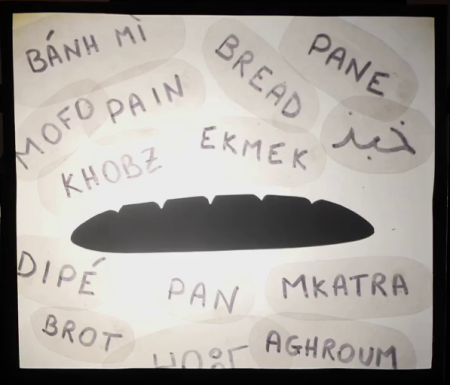 BÁNH MÌ
BREAD
PANE
MOFO
PAIN
KHOBZ
EKMEK
خبز
DIPÉ
PAN
MKATRA
BROT
AGHROUM